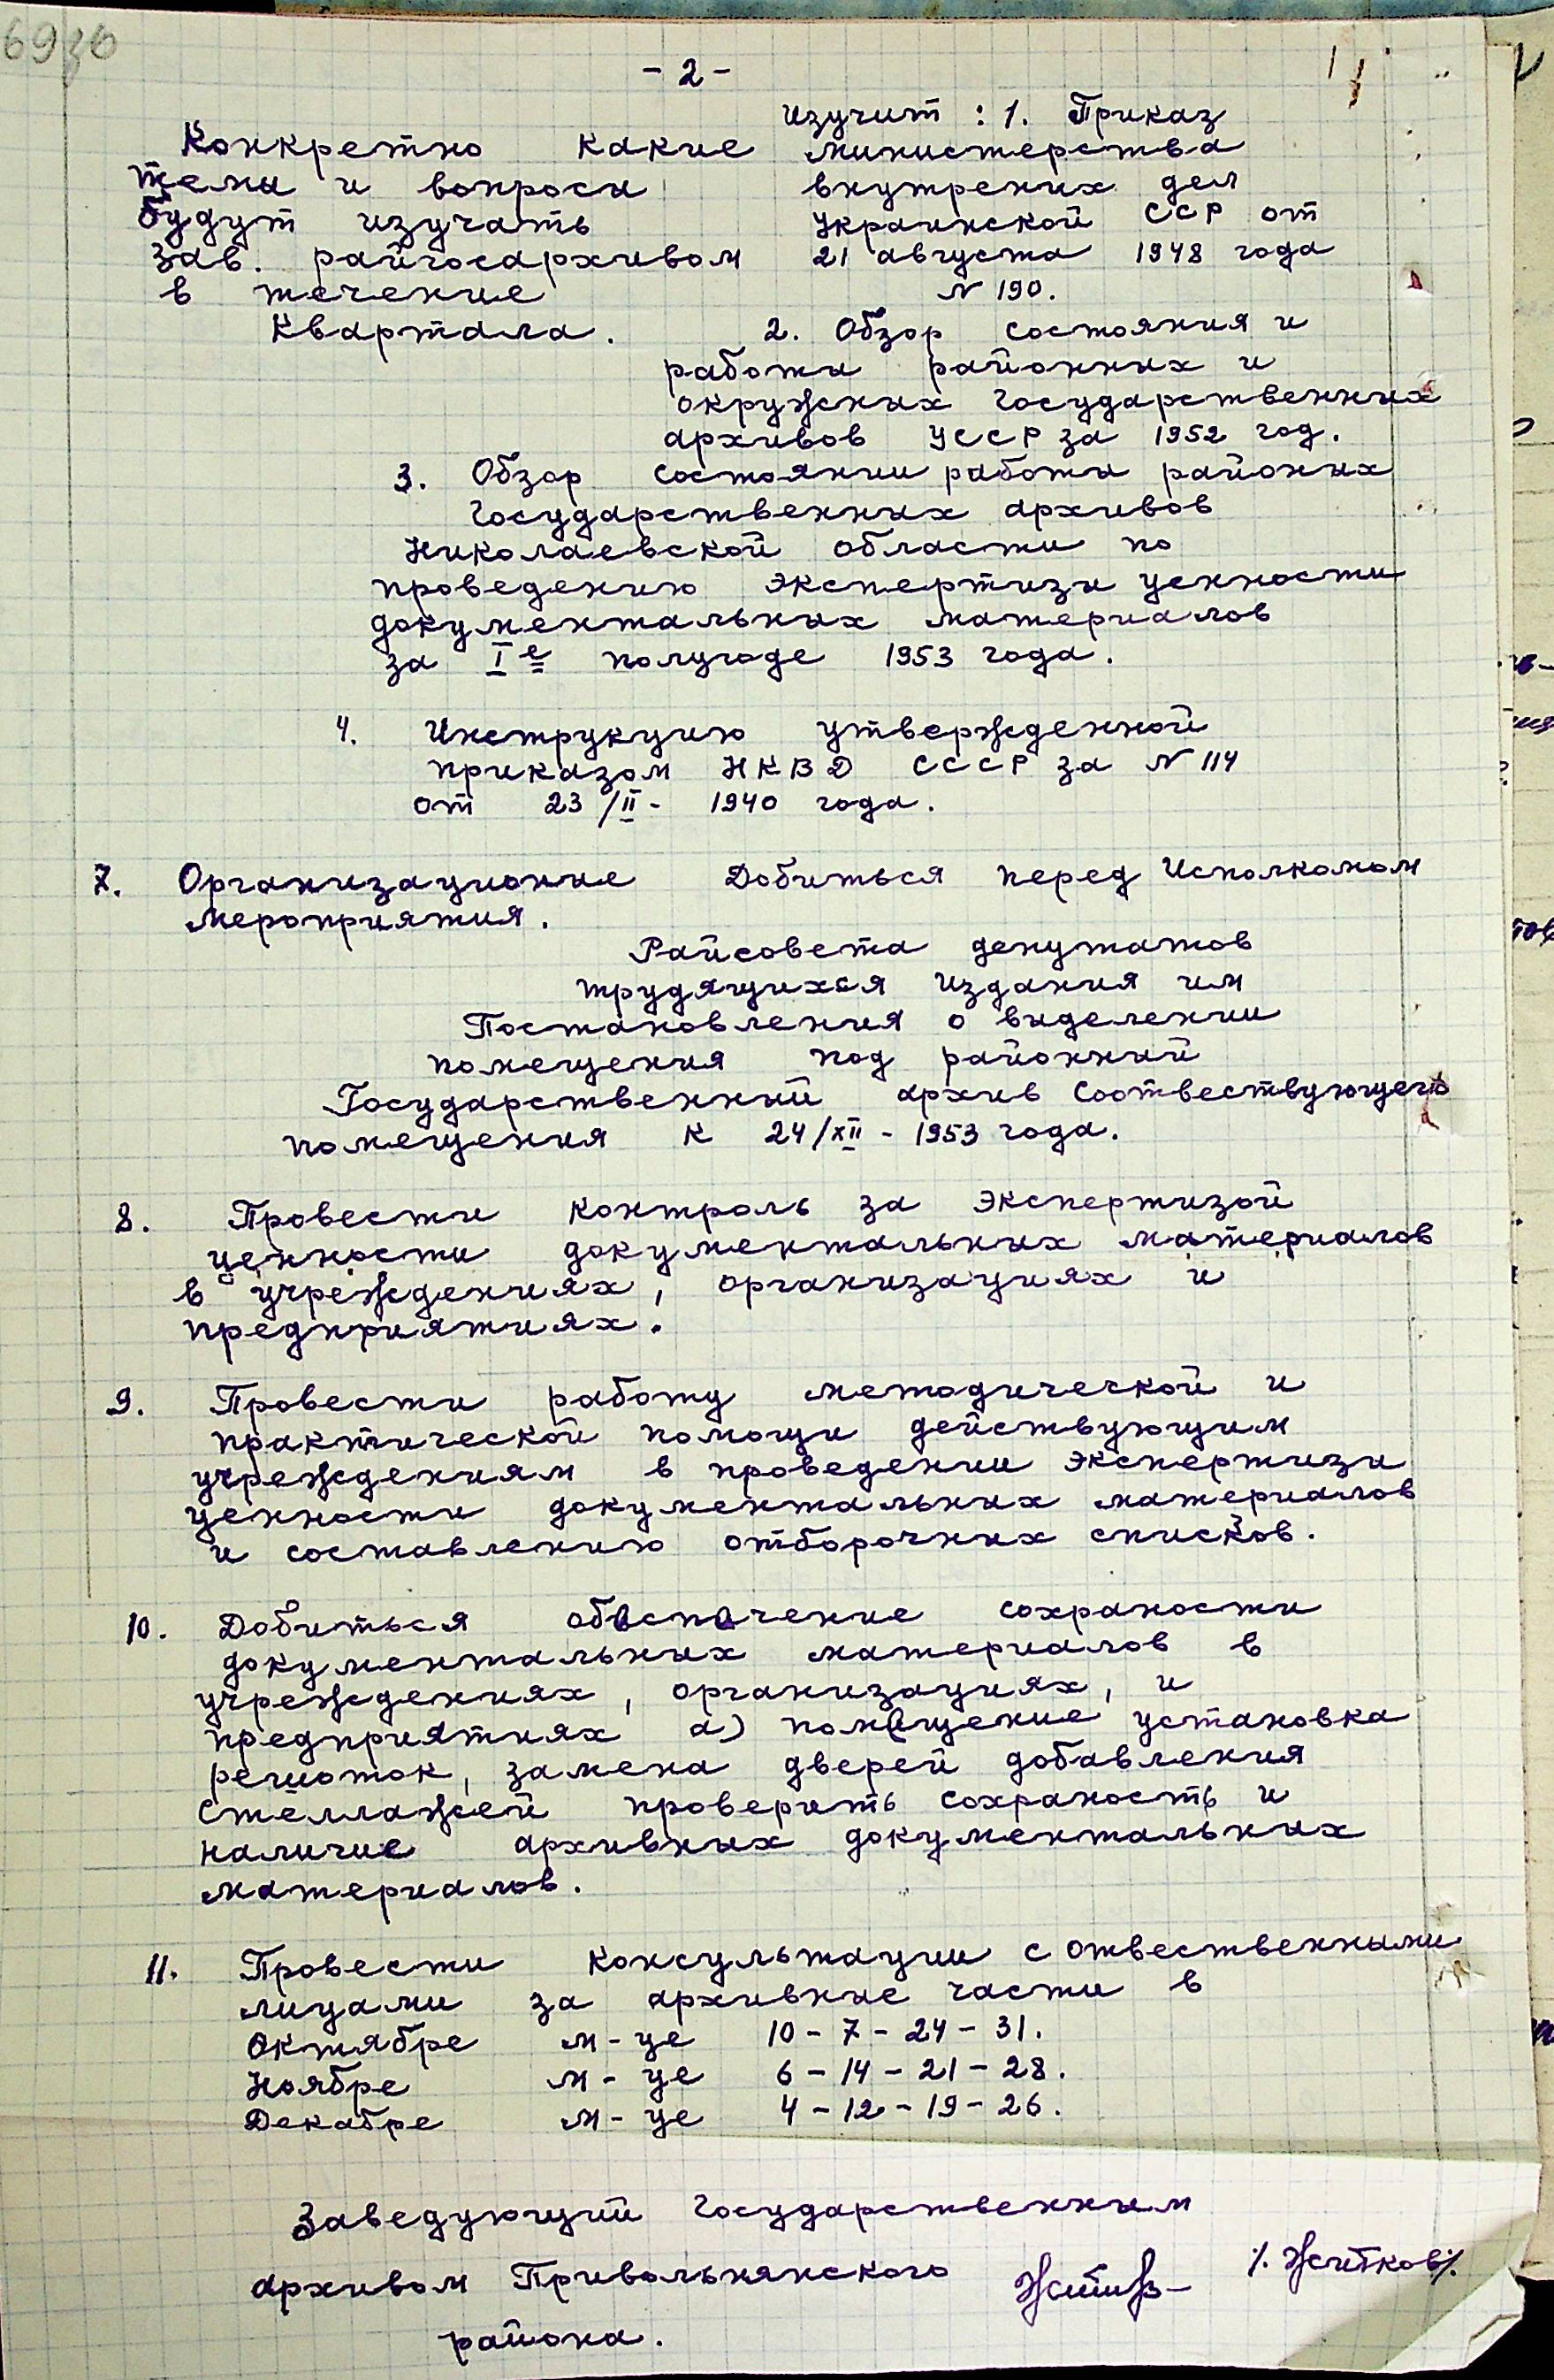 - 2 -
Изучит : 1. Приказ
Конкретно какие министерства
темы и вопросы внутрених дел
будут изучать Украинской ССР от
зав. райгосархивом 21 августа 1948 года
в течение N 190.
квартала. 2. Обзор состояния и
работы районных и
окружных государственных
архивов УССР за 1952 год.
3. Обзор состоянии работы районых
государственных архивов
Николаевской области по
проведению экспертизы ценности
документальных материалов
за I е полугоде 1953 года.
4. Инструкцию утвержденной
приказом НКВД СССР за N 114
от 23/II - 1940 года.
7. Организационые Добиться перед Исполкомом
мероприятия.
Райсовета депутатов
трудящихся издания им
Постановления о выделении
помещения под районный
Государственный архив соотвествующего
помещения к 24/XII - 1953 года.
8. Провести контроль за экспертизой
ценности документальных материалов
в учреждениях, организациях и
предприятиях.
9. Провести работу методической и
практической помощи действующим
учреждениям в проведении экспертизы
ценности документальных материалов
и составлению отборочных списков.
10. Добиться обеспечение сохраности
документальных материалов в
учреждениях, организациях, и
предприятиях а) помещение установка
решоток, замена дверей добавления
стеллажей проверить сохраность и
наличие архивных документальных
материалов.
11. Провести консультации с отвественными
лицами за архивные части в
Октябре м-це 10 - 7 - 24 - 31.
Ноябре м-це 6 - 14 - 21 - 28.
Декабре м-це 4 - 12 - 19 - 26.
Заведующий Государственным
архивом Привольнянского /. Житков/.
района.